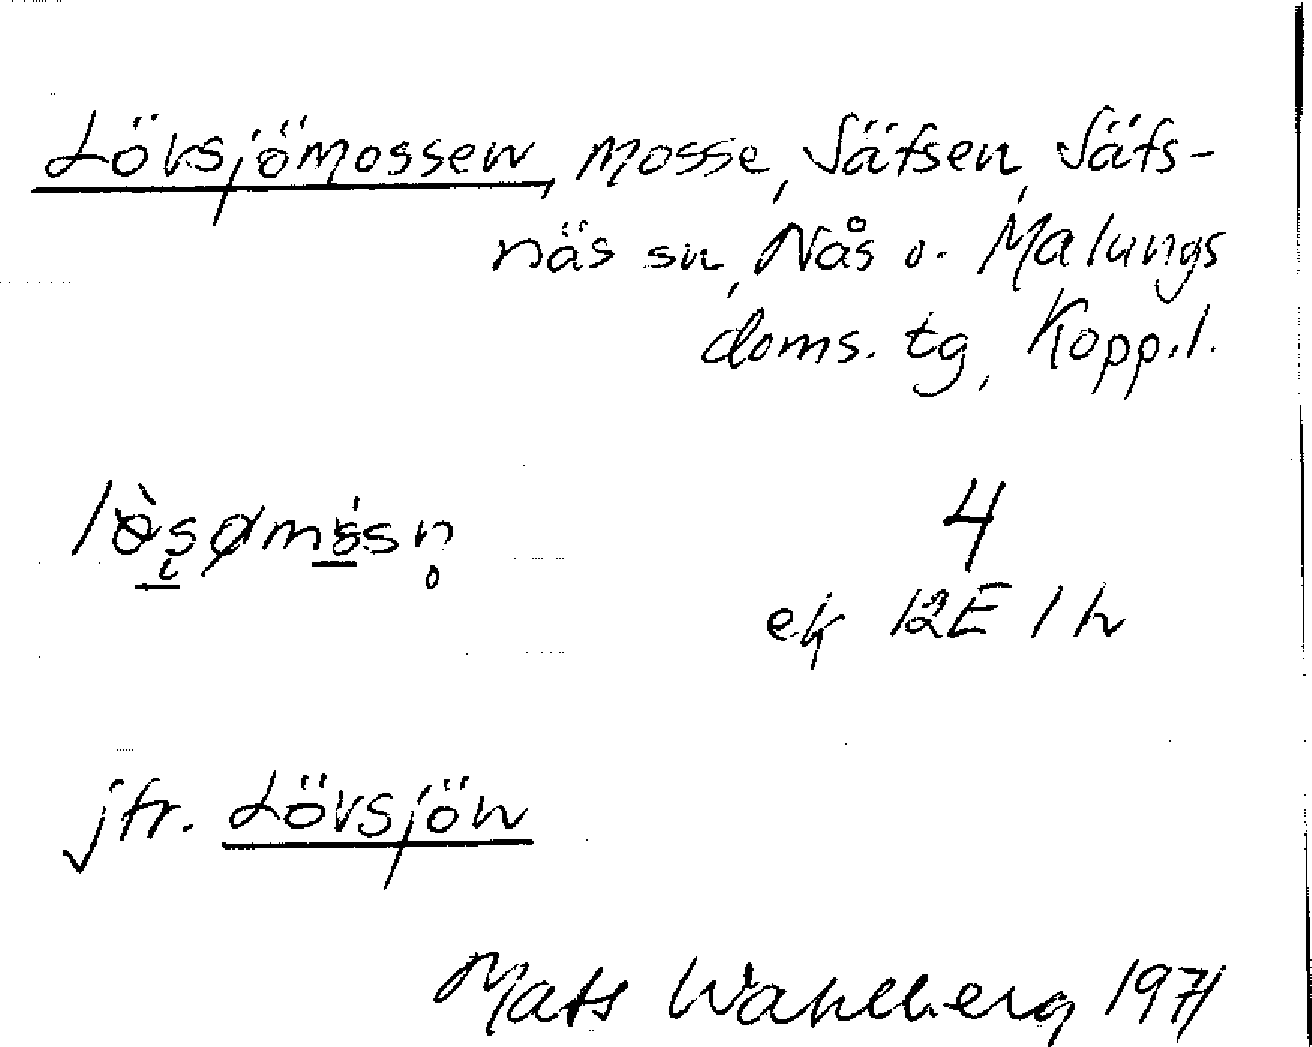 Lövsjömossen, mosse, Säfsen, Säfs-
näs sn, Nås o. Malungs
doms. tg, Kopp.l.
4
ek 12E 1h
jfr. Lövsjön
Mats Wahlberg 1971